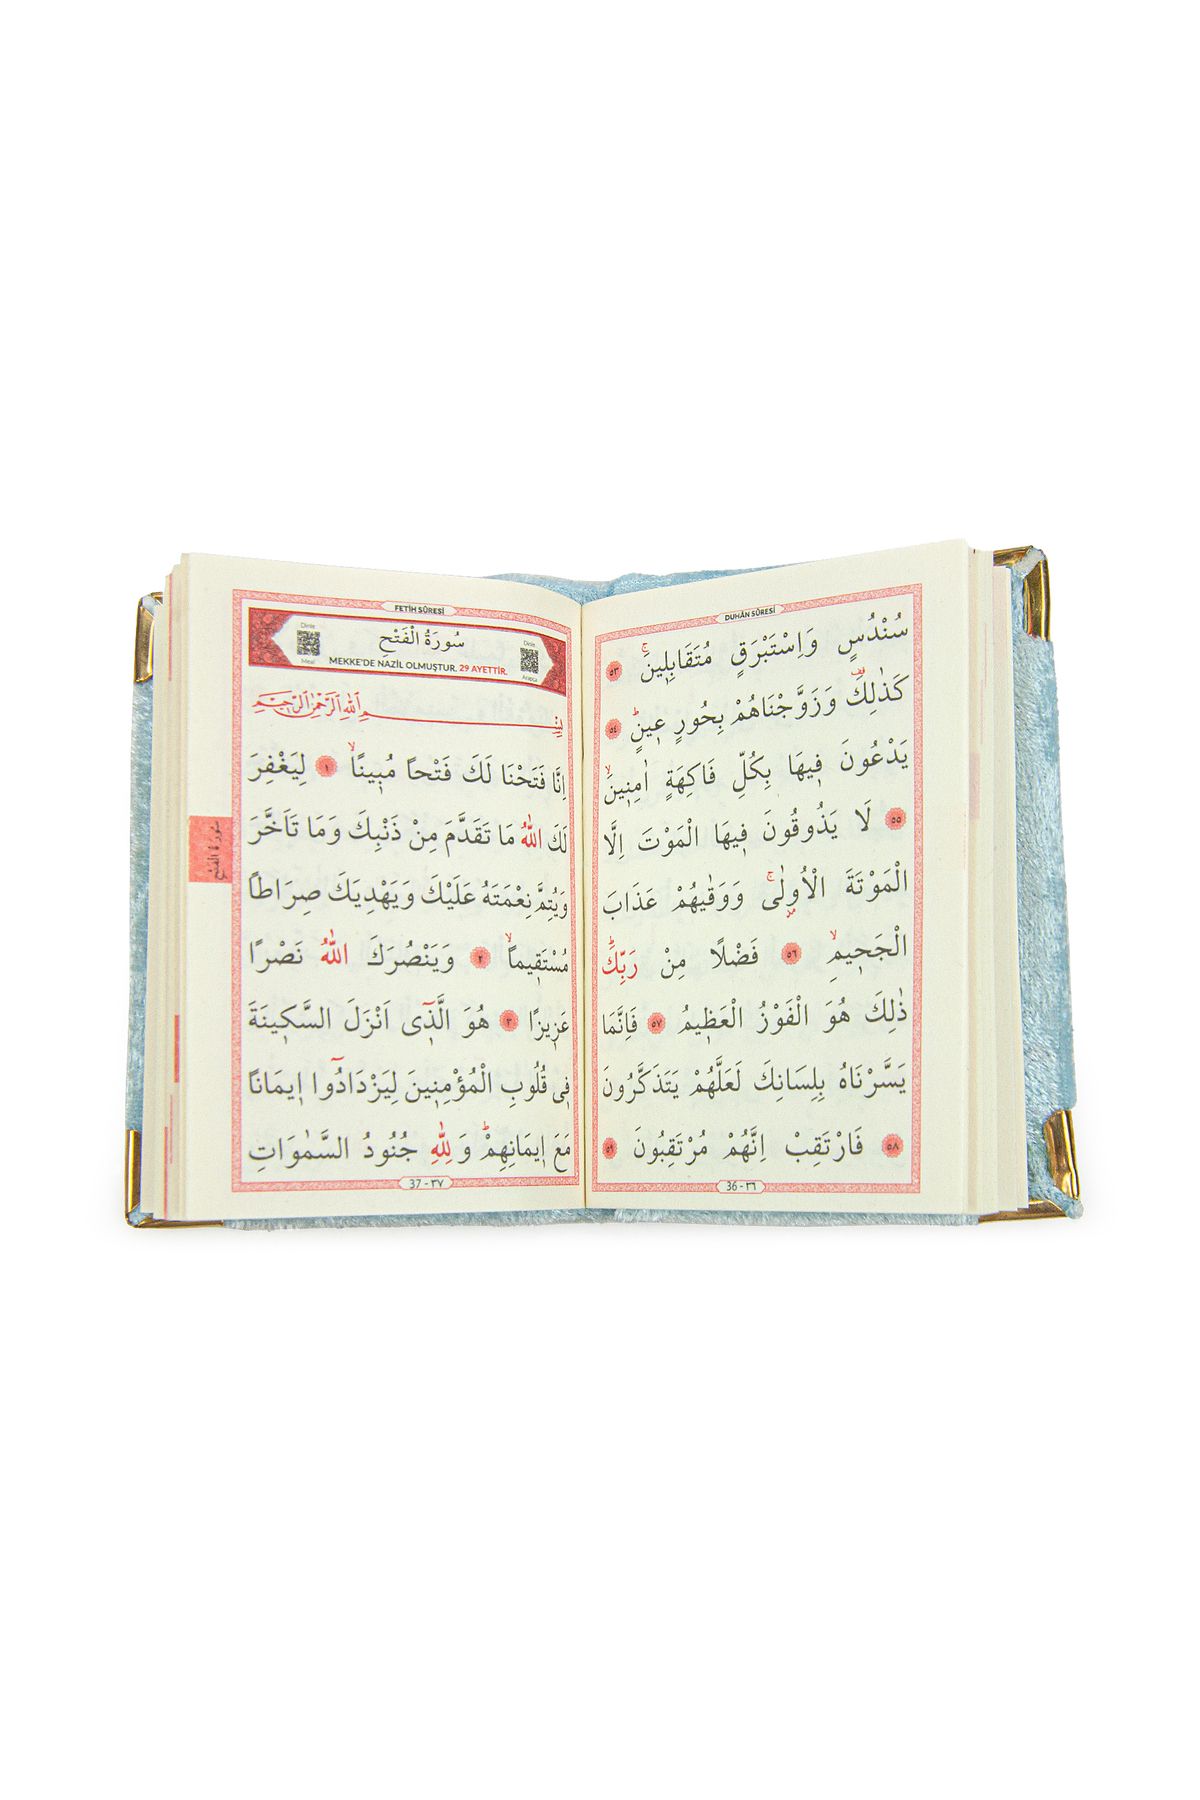 DUHÂN SÛRESİ
سُنْدُسٍ وَاِسْتَبْرَقٍ مُتَقَابِل۪ينَۚ ٥٣
كَذٰلِكَ۠ وَزَوَّجْنَاهُمْ بِحُورٍ ع۪ينٍۜ ٥٤
يَدْعُونَ ف۪يهَا بِكُلِّ فَاكِهَةٍ اٰمِن۪ينَۙ
٥٥ لَا يَذُوقُونَ ف۪يهَا الْمَوْتَ اِلَّا
الْمَوْتَةَ الْاُو۫لٰىۚ وَوَقٰيهُمْ عَذَابَ
الْجَح۪يمِۙ ٥٦ فَضْلًا مِنْ رَبِّكَۜ
ذٰلِكَ هُوَ الْفَوْزُ الْعَظ۪يمُ ٥٧ فَاِنَّمَا
يَسَّرْنَاهُ بِلِسَانِكَ لَعَلَّهُمْ يَتَذَكَّرُونَ
٥٨ فَارْتَقِبْ اِنَّهُمْ مُرْتَقِبُونَ ٥٩
36 - ٣٦
FETİH SÛRESİ
سُورَةُ الْفَتْحِ
Dinle
Meal
Dinle
Arapça
MEKKE'DE NAZİL OLMUŞTUR. 29 AYETTİR.
بِسْمِ اللّٰهِ الرَّحْمٰنِ الرَّح۪يمِ
اِنَّا فَتَحْنَا لَكَ فَتْحاً مُب۪يناًۙ ١ لِيَغْفِرَ
لَكَ اللّٰهُ مَا تَقَدَّمَ مِنْ ذَنْبِكَ وَمَا تَاَخَّرَ
وَيُتِمَّ نِعْمَتَهُ عَلَيْكَ وَيَهْدِيَكَ صِرَاطاً
مُسْتَق۪يماًۙ ٢ وَيَنْصُرَكَ اللّٰهُ نَصْرًا
عَز۪يزًا ٣ هُوَ الَّذ۪ٓى اَنْزَلَ السَّك۪ينَةَ
ف۪ى قُلُوبِ الْمُؤْمِن۪ينَ لِيَزْدَادُٓوا ا۪يمَاناً
مَعَ ا۪يمَانِهِمْۜ وَلِلّٰهِ جُنُودُ السَّمٰوَاتِ
37 - ٣٧
سُورَةُ الْفَتْحِ